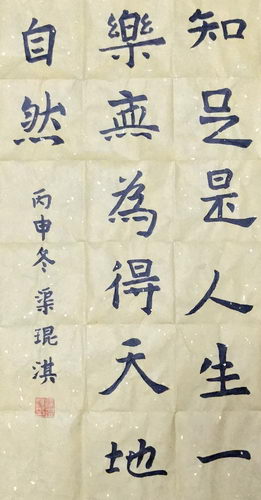 知足是人生一
樂無為得天地
自然
丙申冬渠琨淇